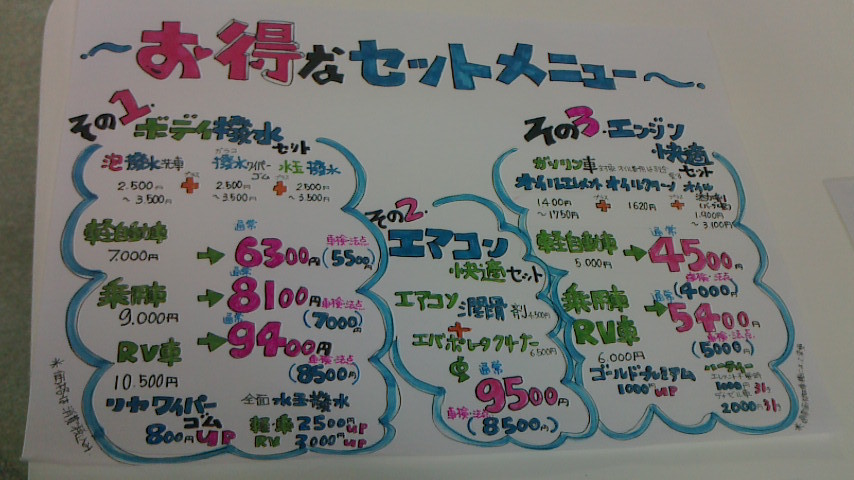 ～お得なセットメニュー～
その1.
ボディ撥水
セット
泡撥水洗車
2.500円
～3.500円
プラス
+
ガラコ
撥水ワイパーゴム
2.500円
～3.500円
プラス
+
水玉撥水
2500円
～3.500円
軽自動車
7.000円
→
通常
6300円
車検・法点
(5500円)
乗用車
9.000円
→
通常
8100円
車検・法点
(7000円)
RV車
10.500円
→
通常
9400円
車検・法点
(8500円)
リヤワイパー
ゴム
800円UP
全面水玉撥水
軽・乗 2500円UP
RV 3000円UP
その2.
エアコン
快適セット
エアコン潤滑剤
4.500円
+
エバポレタクリーナー
6.500円
9500円
車検・法点
(8500円)
その3.エンジン
快適
セット
ガソリン車
オイルエレメント
1400円
～1750円
プラス
+
オイルクリーン
1620円
プラス
+
オイル
1.900円
～3.100円
軽自動車
5.000円
→
通常
4500円
車検・法点
(4000円)
乗用車
RV車
6.000円
→
通常
5400円
車検・法点
(5000円)
ゴールドプレミアム
1000円UP
1000円引
2000円引